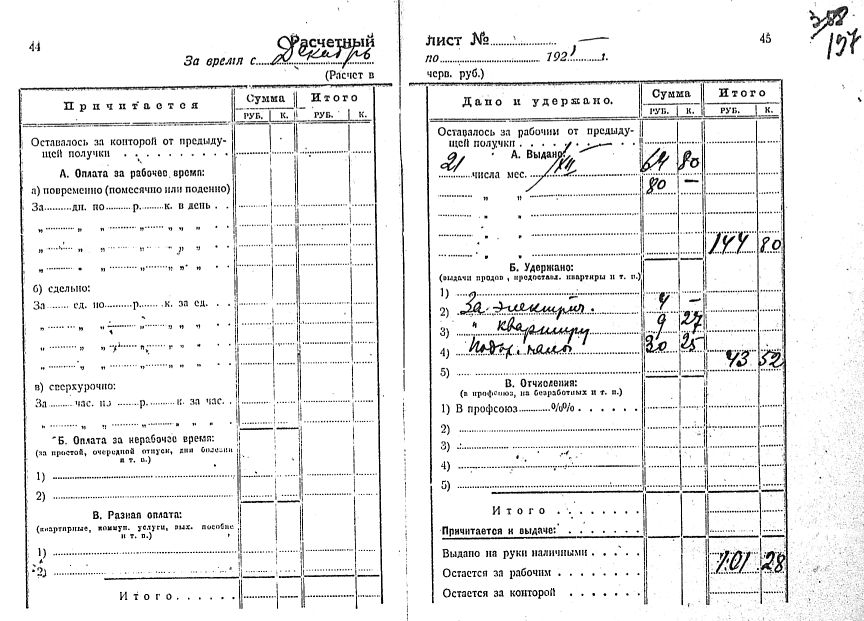 44
Расчетный
За время с Декабрь
(Расчет в
Причитается
Сумма
Итого
РУБ.
К.
РУБ.
К.
Оставалось за конторой от предыду-
щей получки
А. Оплата за рабочее время:
а) повременно (помесячно или поденно)
За дн. по р. к. в день
„ „ „ „ „ „
„ „ „ „ „ „
„ „ „ „ „ „
б) сдельно:
За ед. по р. к. за ед.
„ „ „ „ „ „
„ „ „ „ „ „
„ „ „ „ „ „
в) сверхурочно:
За час. по р. к. за час.
„ „ „ „ „ „
Б. Оплата за нерабочее время:
(за простой, очередной отпуск, дни болезни
и т. п.)
1)
2)
В. Разная оплата:
(квартирные, коммун. услуги, вых. пособие
и т. п.)
1)
2)
Итого
лист №
45
358
197
по 192 г.
черв. руб.)
Дано и удержано.
Сумма
Итого
РУБ.
К.
РУБ.
К.
Оставалось за рабочим от предыду-
щей получки
А. Выдано:
21 числа мес. XII 64 80
80 —
„ „
„ „
„ „ 144 80
Б. Удержано:
(выдачи продов., предоставл. квартиры и т. п.)
1)
2) За электрич. 4 —
3) " квартиру 9 27
4) 30 25
43 52
5)
В. Отчисления:
(в профсоюз, на безработных и т. п.)
1) В профсоюз %%
2)
3)
4)
5)
Итого
Причитается к выдаче:
Выдано на руки наличными
Остается за рабочим 101 28
Остается за конторой